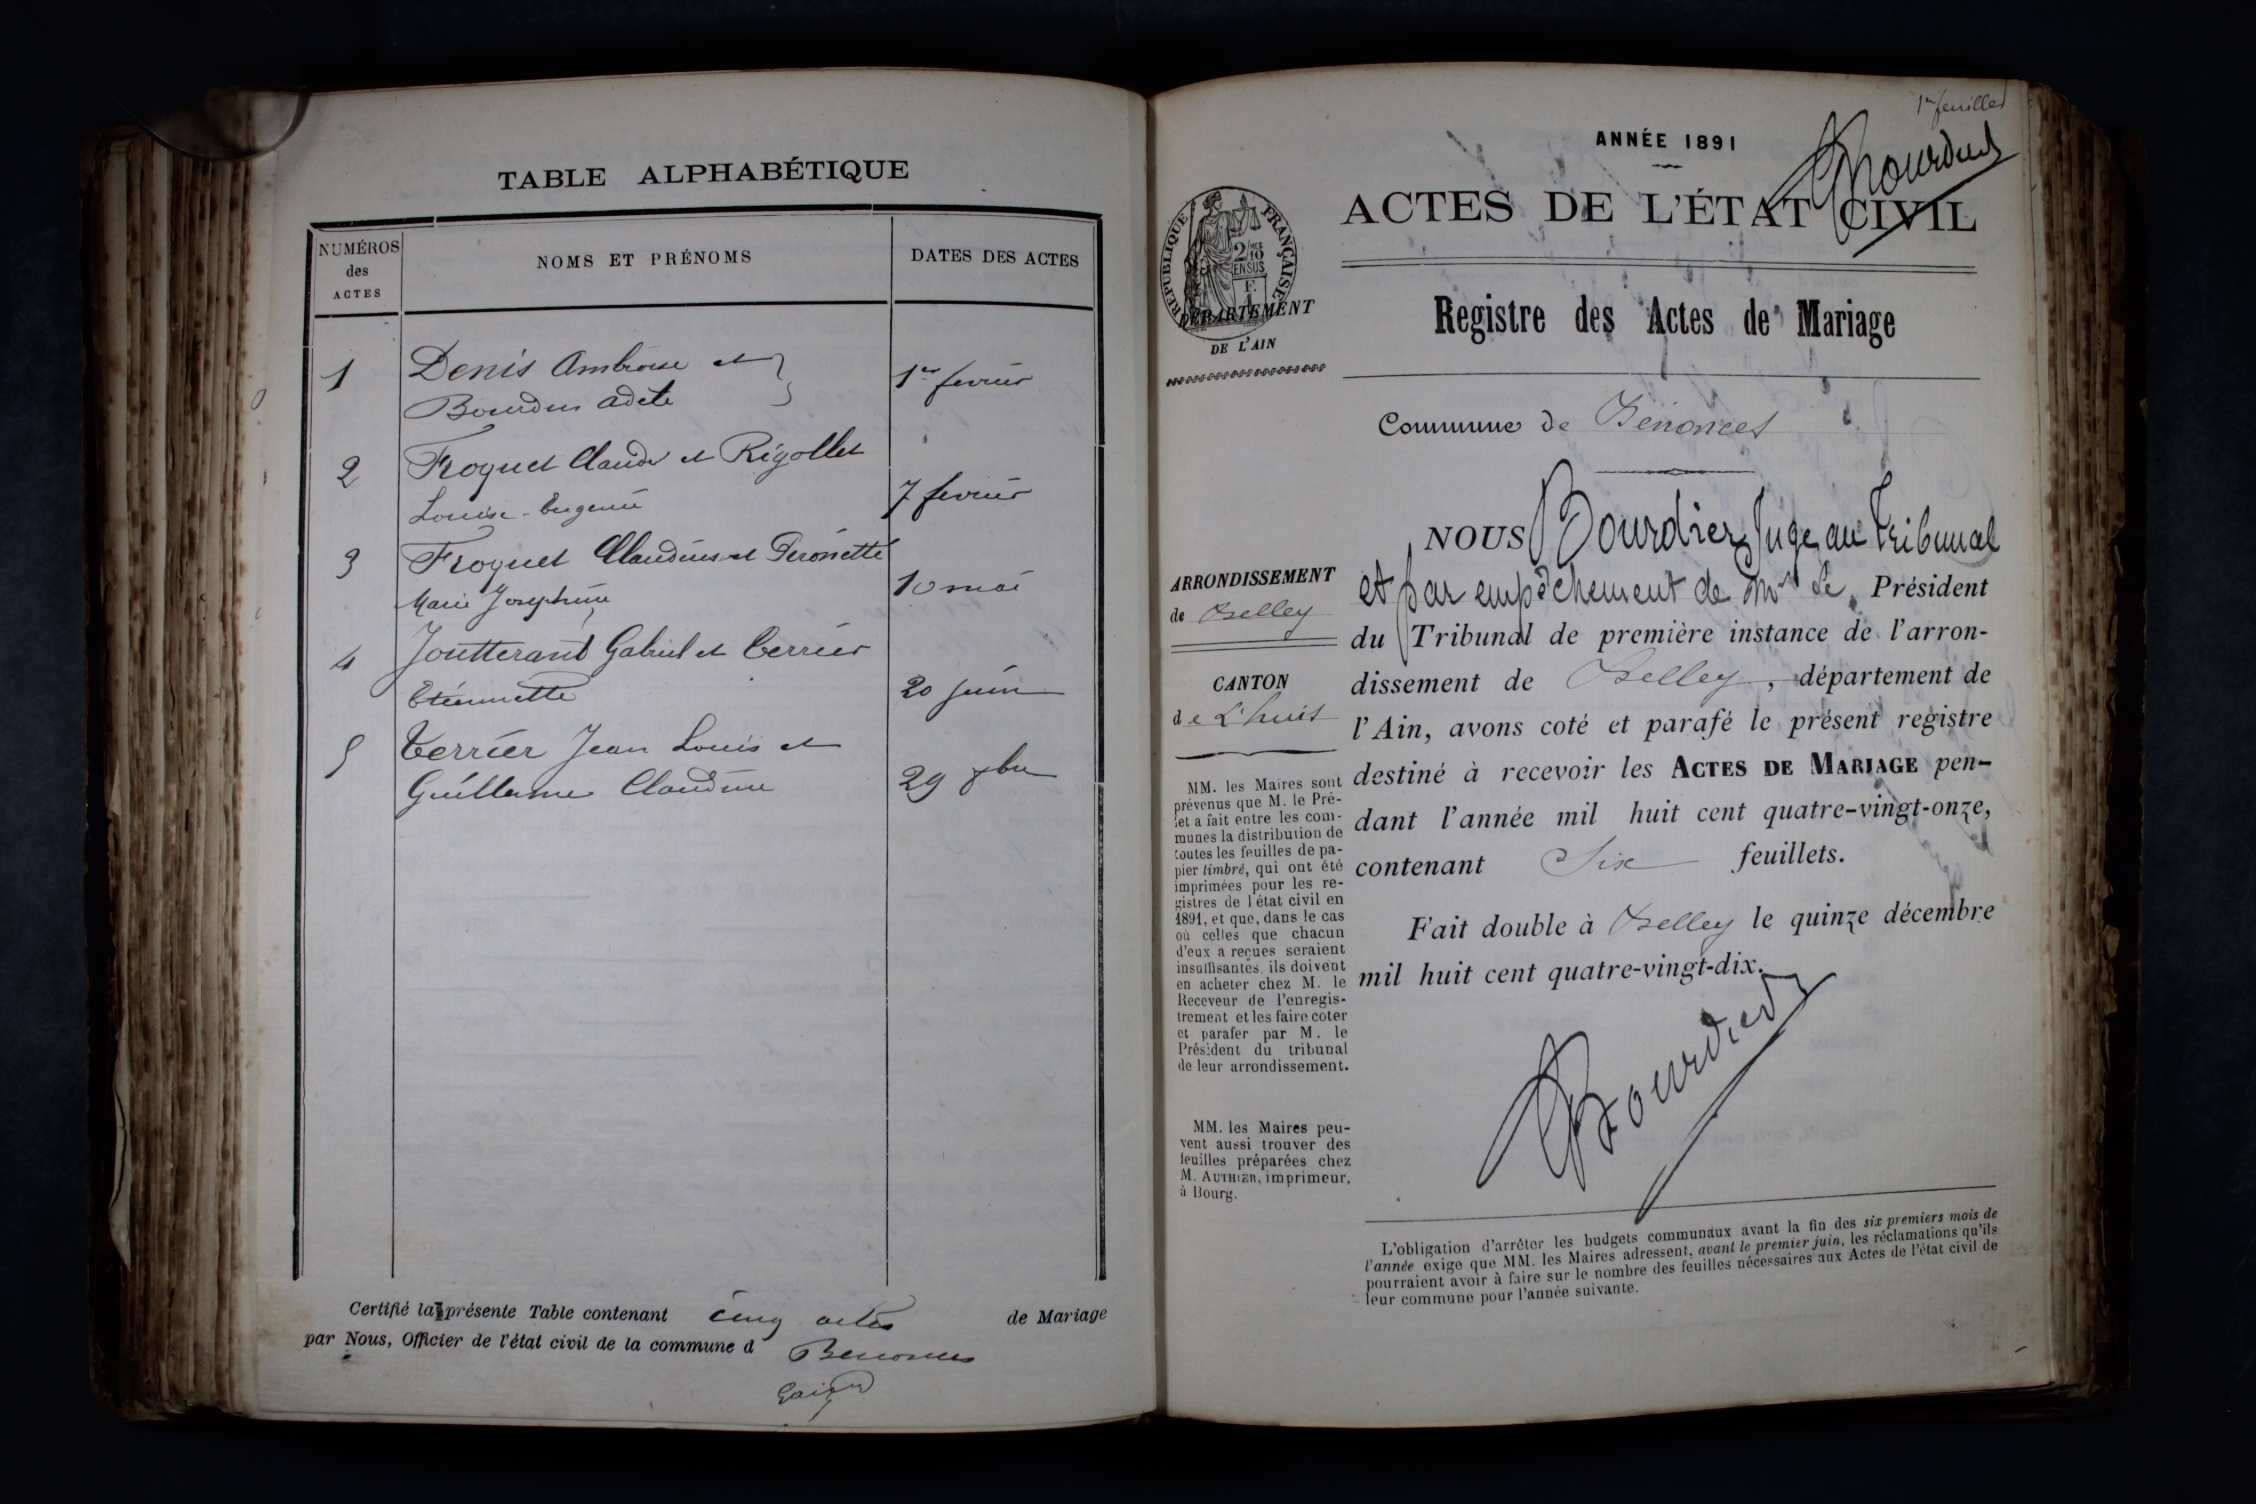 TABLE ALPHABÉTIQUE
NUMÉROS
des
ACTES
NOMS ET PRÉNOMS
DATES DES ACTES
1 Denis Ambroise et
Bourdin Adèle
1er fevrier
2 Froquet Claude et Rigollet
Louise-Eugenie
7 fevrier
3 Froquet Claudius et Peronette
Marie Josephine
10 mai
4 Joutterand Gabriel et Terrier
Etiennette
20 juin
5 Terrier Jean Louis et
Guillerme Claudine
29 xbre
Certifié la présente Table contenant cinq actes de Mariage
par Nous, Officier de l'état civil de la commune d Benonces
1er feuillet
ANNÉE 1891
Bourdier
ACTES DE L'ÉTAT CIVIL
RÉPUBLIQUE FRANÇAISE
2/10
EN SUS
DÉPARTEMENT
DE L'AIN
Registre des Actes de Mariage
Commune de Bénonces
NOUS Bourdier, Juge au Tribunal
et par empêchement de Mr le Président
du Tribunal de première instance de l'arron-
dissement de Belley, département de
l'Ain, avons coté et parafé le présent registre
destiné à recevoir les ACTES DE MARIAGE pen-
dant l'année mil huit cent quatre-vingt-onze,
contenant Six feuillets.
Fait double à Belley le quinze décembre
mil huit cent quatre-vingt-dix.
Bourdier
ARRONDISSEMENT
de Belley
CANTON
de L'huis
MM. les Maires sont
prévenus que M. le Pré-
fet a fait entre les com-
munes la distribution de
toutes les feuilles de pa-
pier timbré, qui ont été
imprimées pour les re-
gistres de l'état civil en
1891, et que, dans le cas
où celles que chacun
d'eux a reçues seraient
insuffisantes, ils doivent
en acheter chez M. le
Receveur de l'enregis-
trement et les faire coter
et parafer par M. le
Président du tribunal
de leur arrondissement.
MM. les Maires peu-
vent aussi trouver des
feuilles préparées chez
M. AUTHIER, imprimeur,
à Bourg.
L'obligation d'arrêter les budgets communaux avant la fin des six premiers mois de
l'année exige que MM. les Maires adressent, avant le premier juin, les réclamations qu'ils
pourraient avoir à faire sur le nombre des feuilles nécessaires aux Actes de l'état civil de
leur commune pour l'année suivante.